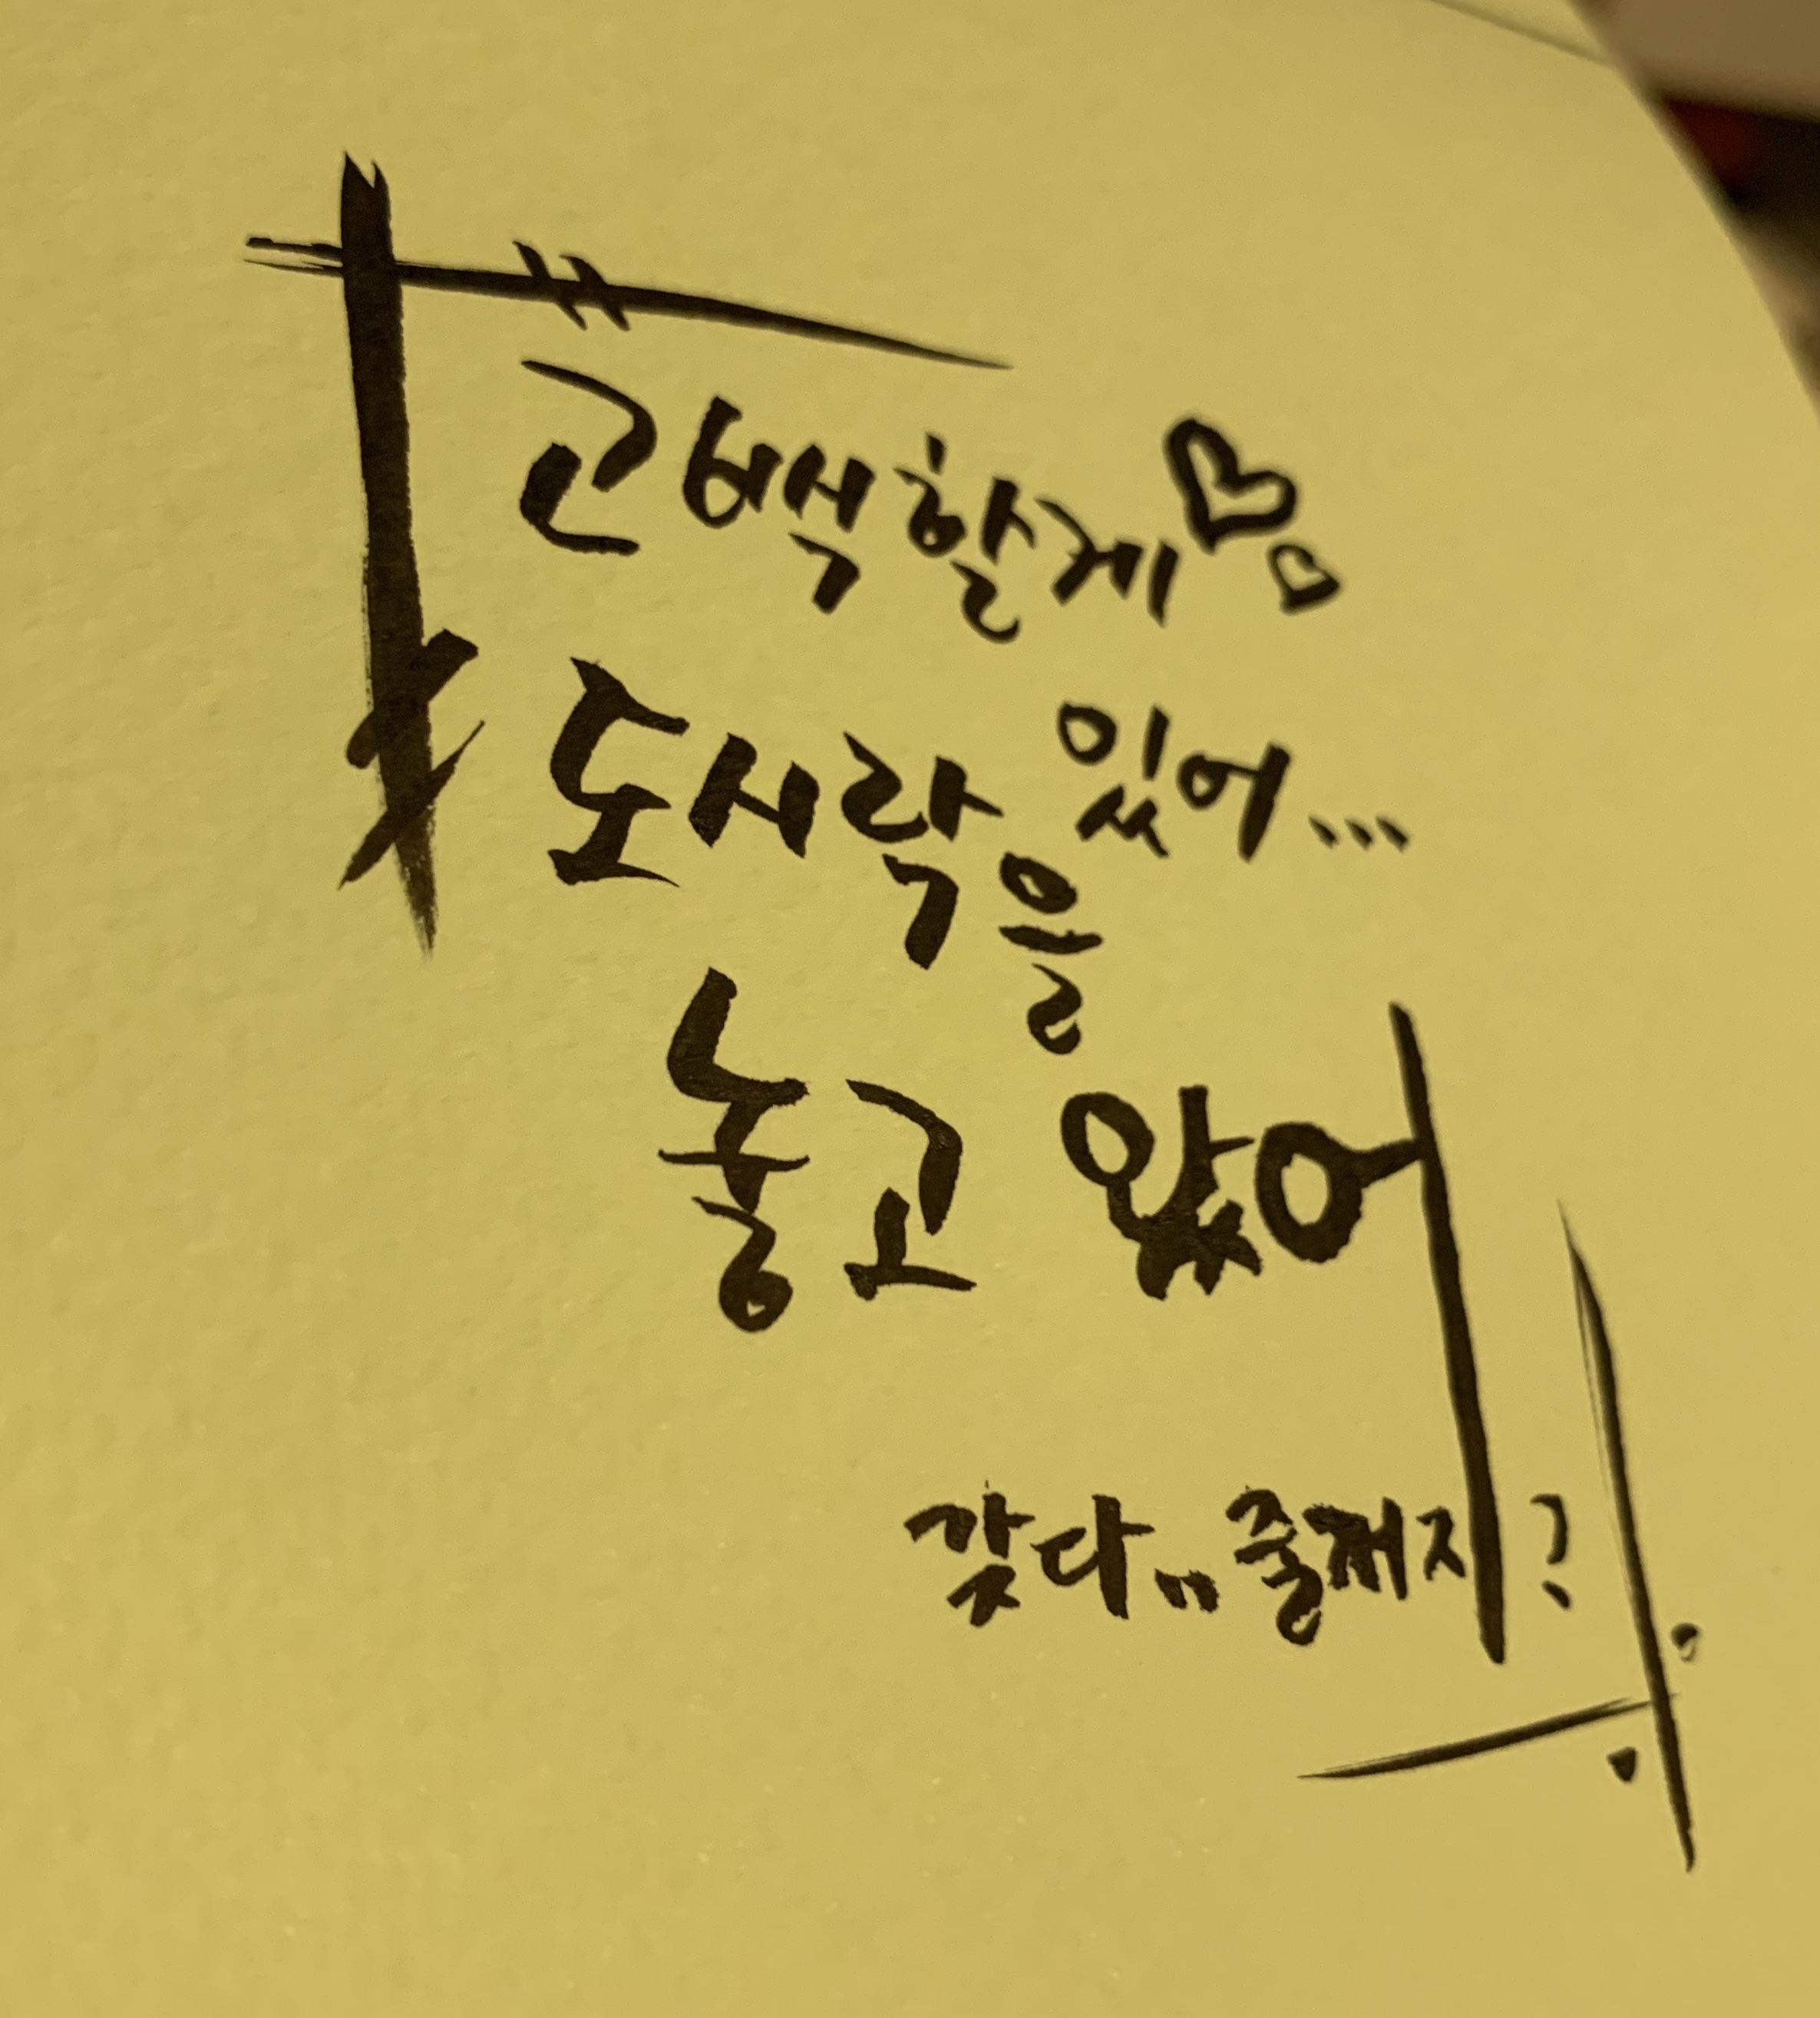 고백할게♡♡
있어...
도시락을
놓고 왔어
갖다.. 줄꺼지?